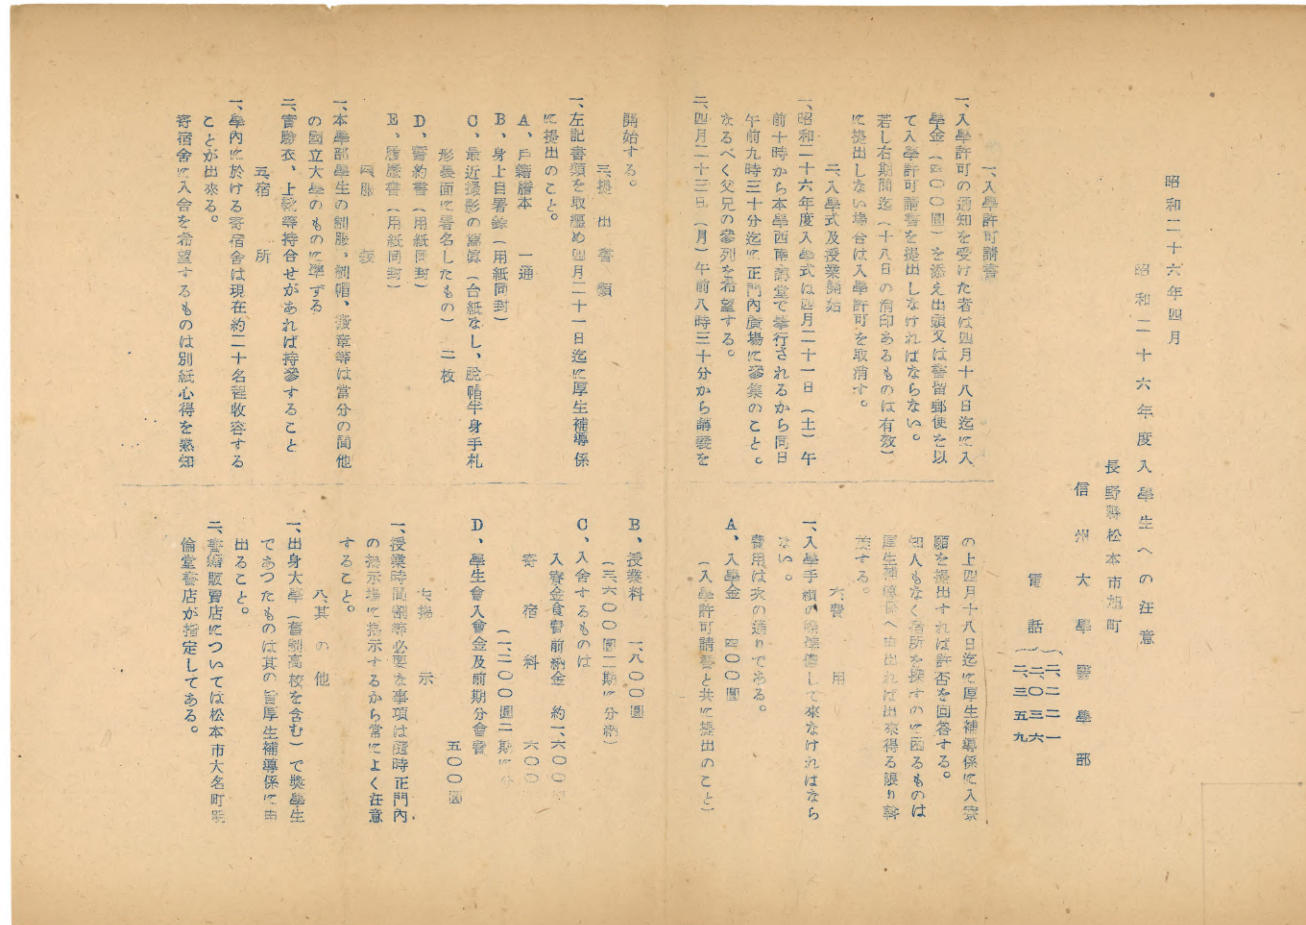 昭和二十六年四月
昭和二十六年度入學生への注意
長野縣松本市旭町
信州大學醫學部
電話
二、二二一
二、〇三六
二、三五九
一、入學許可請書
一、入學許可の通知を受けた者は四月十八日迄に入
學金(四〇〇圓)を添え出頭又は書留郵便を以
て入學許可請書を提出しなければならない。
若し右期間迄(十八日の消印あるものは有效)
に提出しない場合は入學許可を取消す。
二、入學式及授業開始
一、昭和二十六年度入學式は四月二十一日(土)午
前十時から本學西南講堂で擧行されるから同日
午前九時三十分迄に正門內廣場に參集のこと。
なるべく父兄の參列を希望する。
二、四月二十三日(月)午前八時三十分から講義を
開始する。
三、提出書類
一、左記書類を取纒め四月二十一日迄に厚生補導係
に提出のこと。
A、戶籍謄本 一通
B、身上自署錄(用紙同封)
C、最近撮影の寫眞(台紙なし、脫帽半身手札
形裏面に署名したもの) 二枚
D、誓約書(用紙同封)
E、履歷書(用紙同封)
四、服裝
一、本學部學生の制服、制帽、徽章等は當分の間他
の國立大學のものに準ずる
二、實驗衣、上靴等持合せがあれば持參すること
五、宿所
一、學內に於ける寄宿舍は現在約二十名程收容する
ことが出來る。
寄宿舍に入舍を希望するものは別紙心得を熟知
の上四月十八日迄に厚生補導係に入寮
願を提出すれば許否を回答する。
知人もなく宿所を探すのに困るものは
厚生補導係へ申出れば出來得る限り斡
旋する。
六、費用
一、入學手續の際準備して來なければなら
ない。
費用は次の通りである。
A、入學金 四〇〇圓
(入學許可請書と共に提出のこと)
B、授業料 一、八〇〇圓
(三、六〇〇圓二期に分納)
C、入舍するものは
入寮金食費前納金 約一、六〇〇
寄宿料 六〇〇
(一、二〇〇圓二期に分
D、學生會入會金及前期分會費
五〇〇圓
七、揭示
一、授業時間割等必要な事項は隨時正門內
の揭示場に揭示するから常によく注意
すること。
八、其の他
一、出身大學(舊制高校を含む)で獎學生
であつたものは其の旨厚生補導係に申
出ること。
二、書籍販賣店については松本市大名町明
倫堂書店が指定してある。